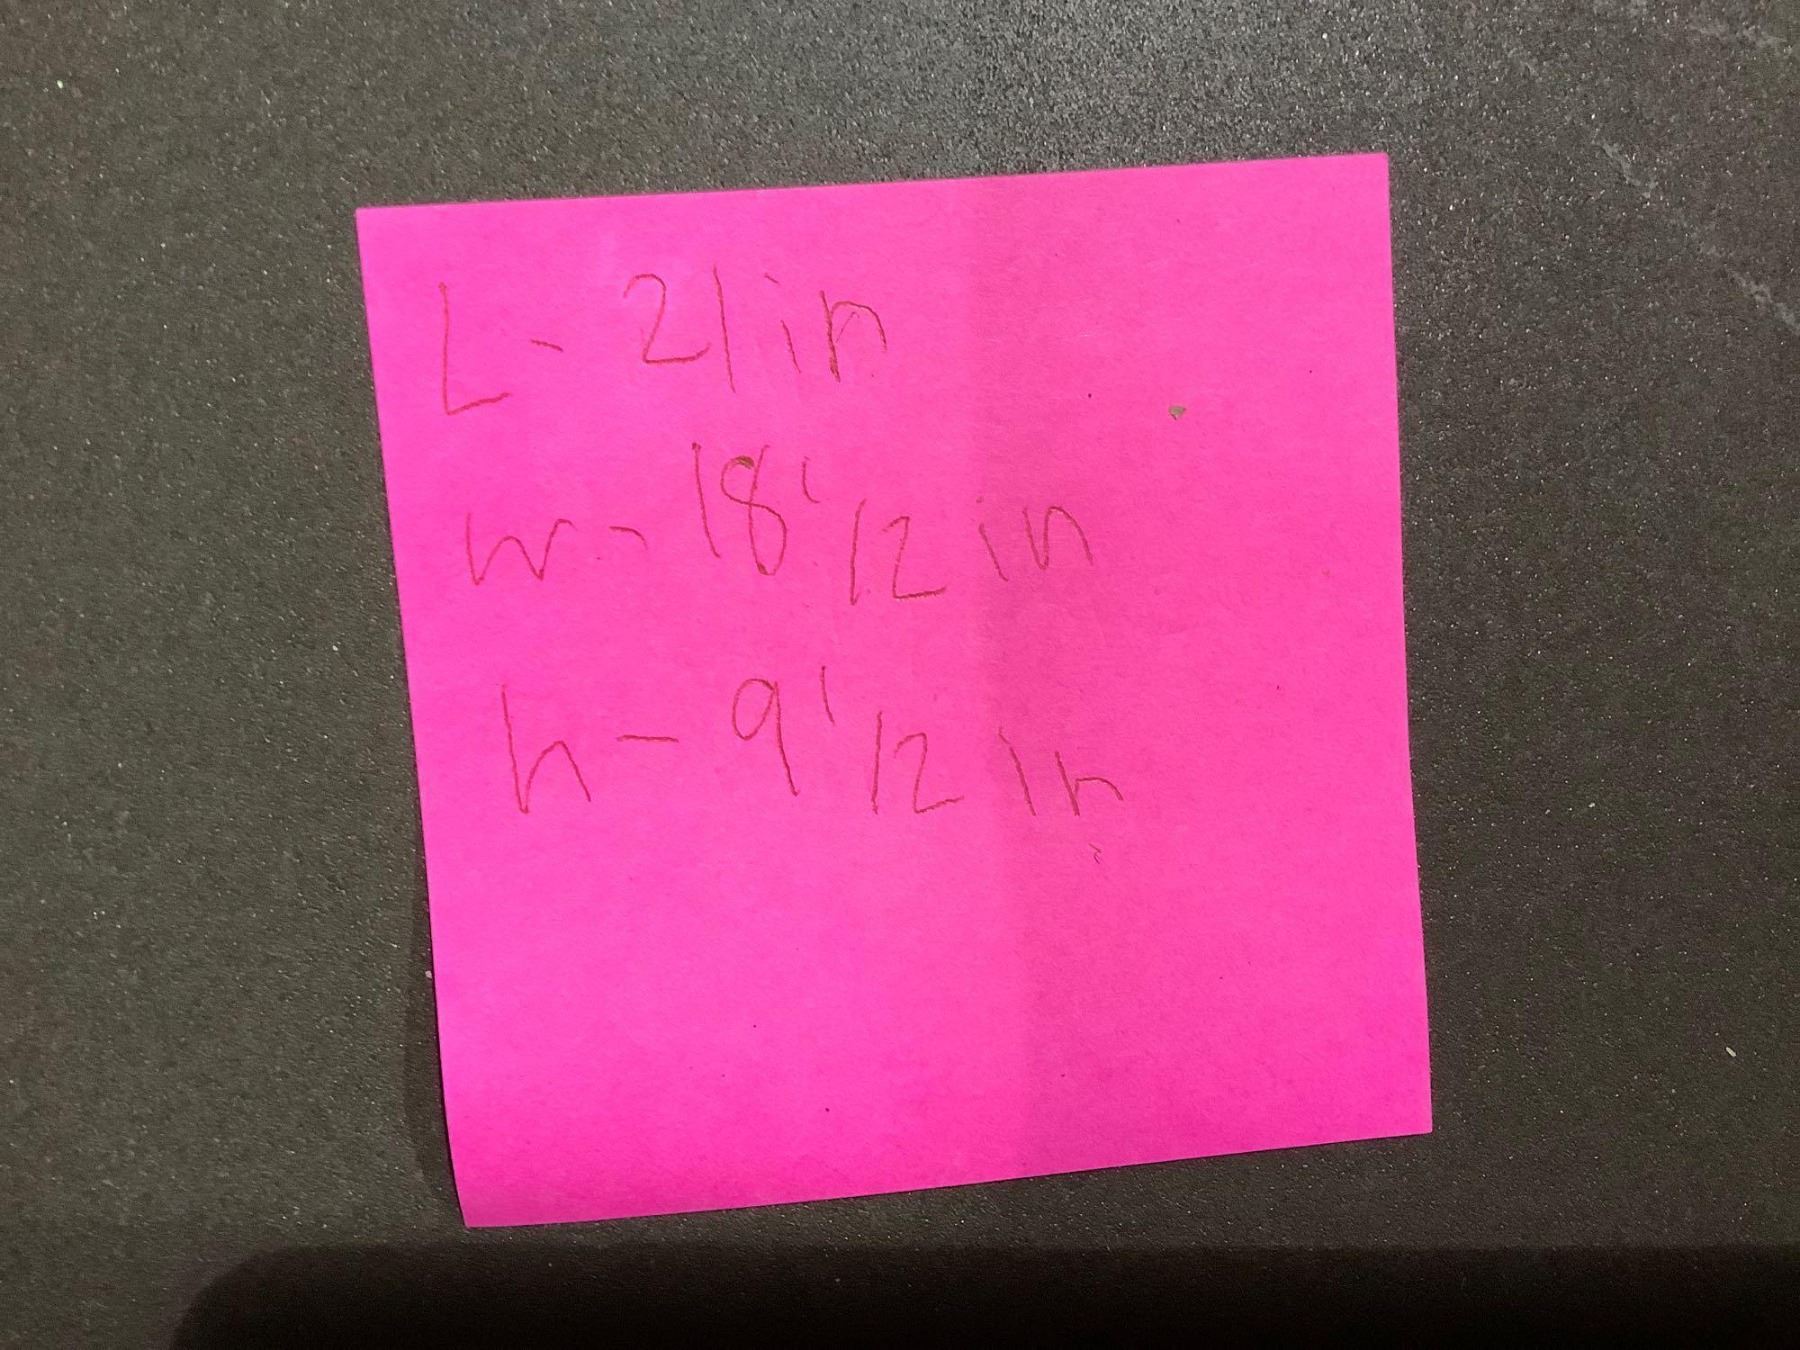 L - 21 in
w - 18 1/2 in
h - 9 1/2 in